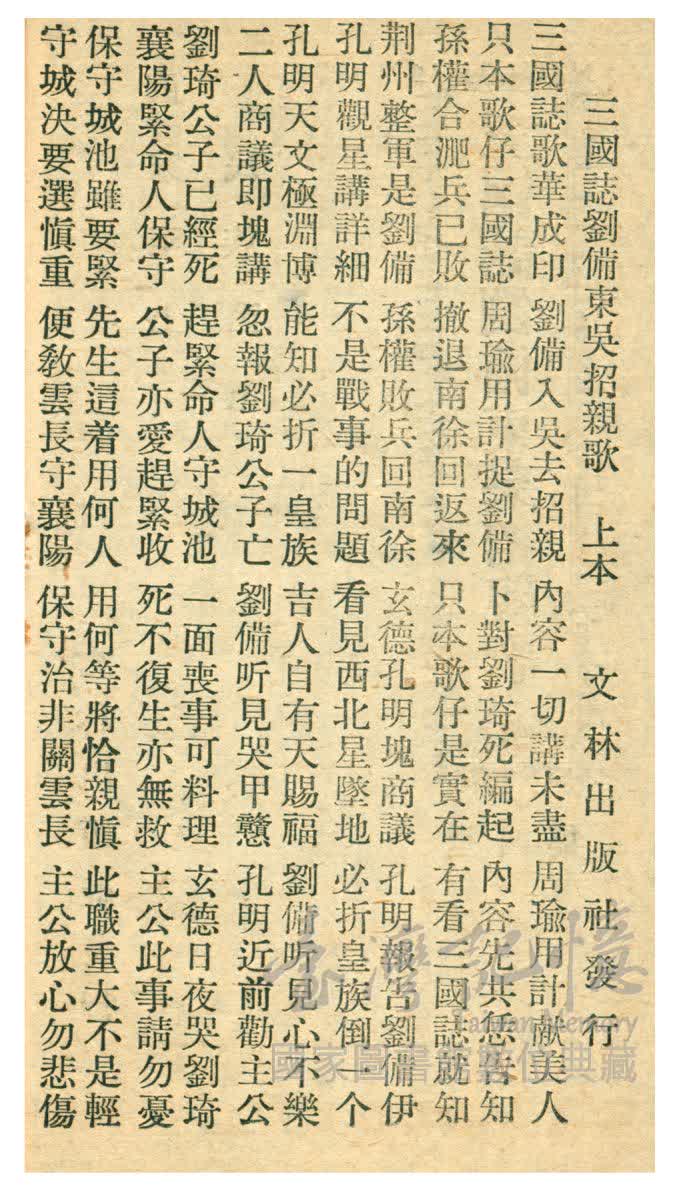 三國誌劉備東吳招親歌　上本　　文林出版社發行
三國誌歌華成印　劉備入吳去招親　內容一切講未盡　周瑜用計献美人
只本歌仔三國誌　周瑜用計捉劉備　卜對劉琦死編起　內容先共恁告知
孫權合淝兵已敗　撤退南徐回返來　只本歌仔是實在　有看三國誌就知
荆州整軍是劉備　孫權敗兵回南徐　玄德孔明塊商議　孔明報告劉備伊
孔明觀星講詳細　不是戰事的問題　看見西北星墜地　必折皇族倒一个
孔明天文極淵博　能知必折一皇族　吉人自有天賜福　劉備听見心不樂
二人商議即塊講　忽報劉琦公子亡　劉備听見哭甲戇　孔明近前勸主公
劉琦公子已經死　趕緊命人守城池　一面喪事可料理　玄德日夜哭劉琦
襄陽緊命人保守　公子亦愛趕緊收　死不復生亦無救　主公此事請勿憂
保守城池雖要緊　先生這着用何人　用何等將恰親愼　此職重大不是輕
守城決要選愼重　便敎雲長守襄陽　保守治非關雲長　主公放心勿悲傷
Taiwan Memory
國家圖書館數位典藏